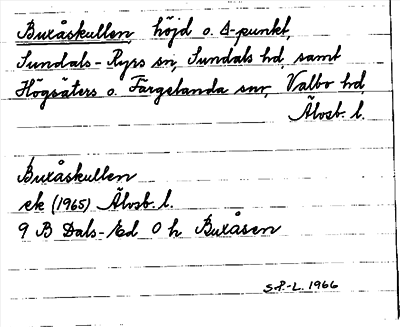 Buxåskullen, höjd o. Δ-punkt,
Sundals-Ryrs sn, Sundals hd, samt
Högsäters o. Färgelanda snr, Valbo hd,
Älvsb. l.
Buxåskullen
ek (1965) Älvsb. l.
9 B Dals-Ed 0 h Buxåsen
S.P.-L. 1966